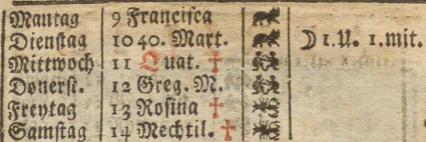 Mantag 9 Francisca
Dienstag 10 40. Mart. ☽ 1.U. 1.mit.
Mittwoch 11 Quat. †
Donerst. 12 Greg. M.
Freytag 13 Rosina †
Samstag 14 Mechtil. †